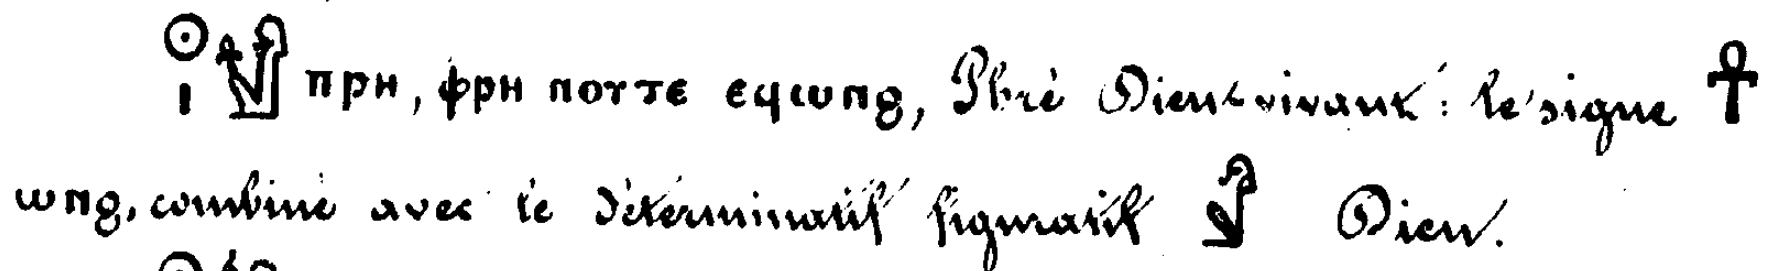 𓇳𓏤 ⲡⲣⲏ, ⲫⲣⲏ ⲛⲟⲩⲧⲉ ⲉϥⲱⲛϩ, Phré Dieu vivant: le signe 𓋹
ⲱⲛϩ, combiné avec le déterminatif figuratif 𓀭 Dieu.